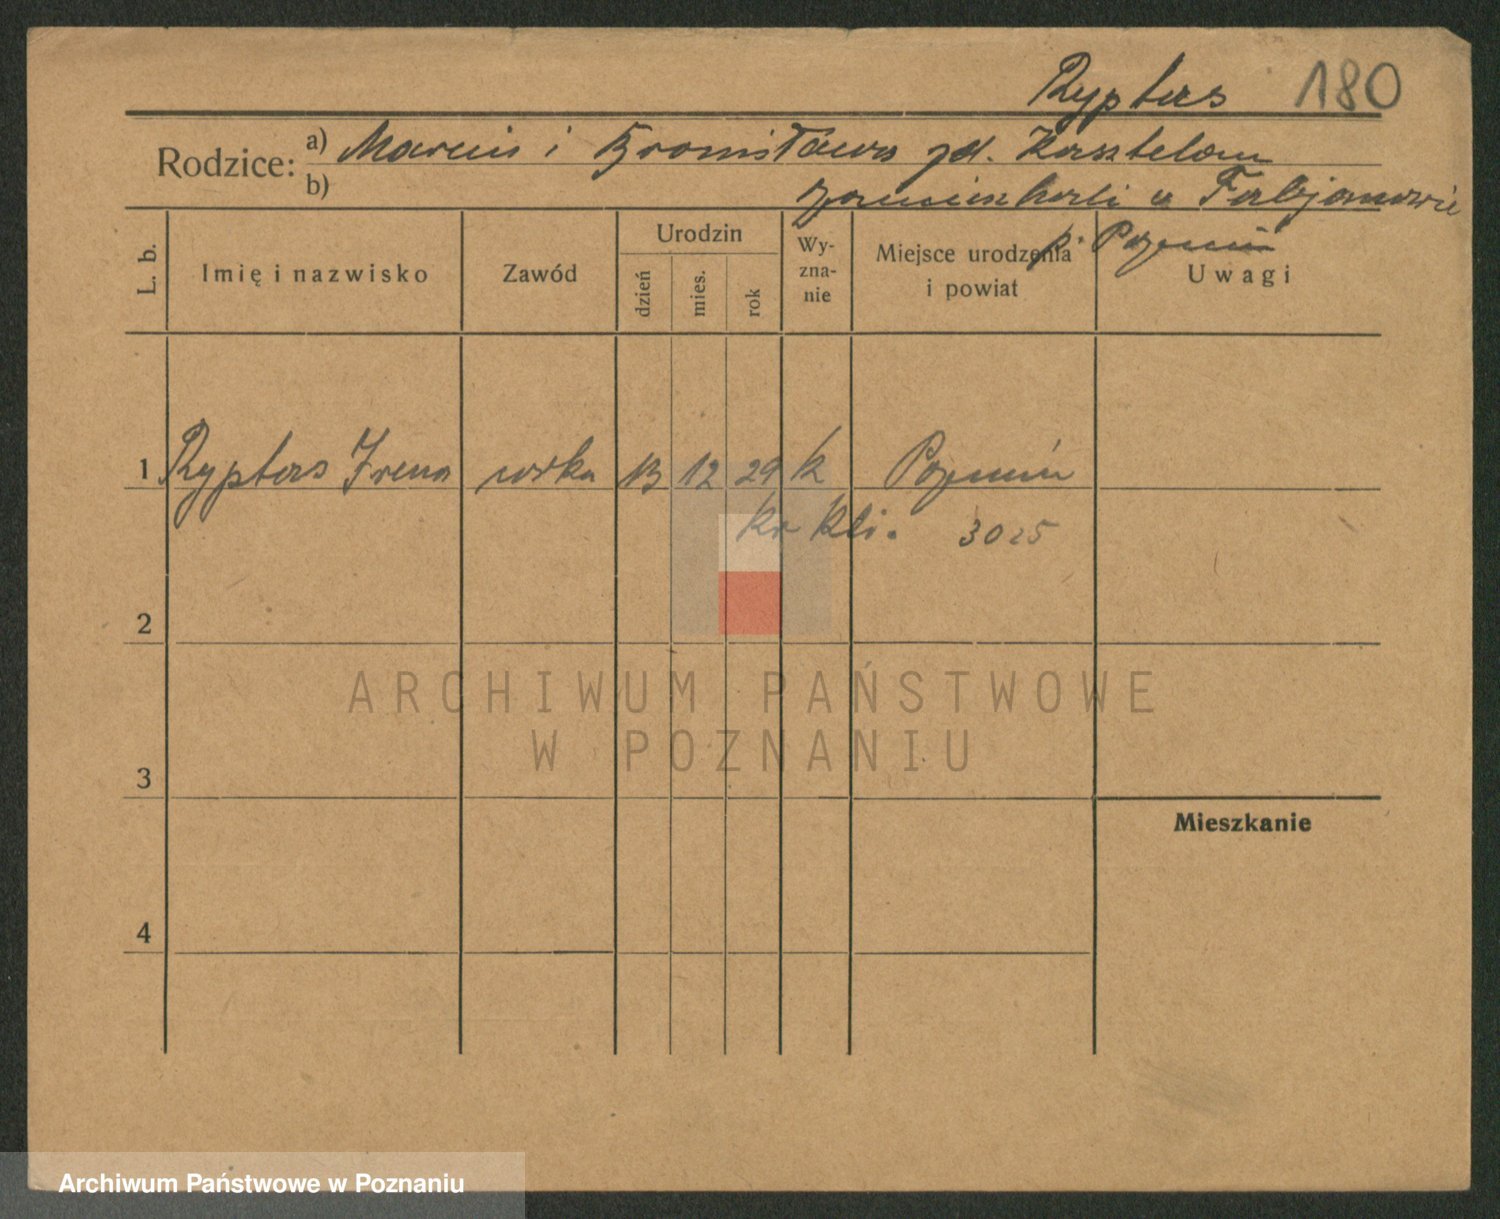 Ryptas 180
Rodzice: a) Marcin i Bronisława zd. Kasztelan
b) zamieszkali w Fabjanowie
p. Poznań
L. b. Imię i nazwisko Zawód Urodzin dzień mies. rok Wy-zna-nie Miejsce urodzenia i powiat Uwagi
1 Ryptas Irena 13 12 29 k Poznań
3025
2
3
Mieszkanie
4
ARCHIWUM PAŃSTWOWE
W POZNANIU
Archiwum Państwowe w Poznaniu